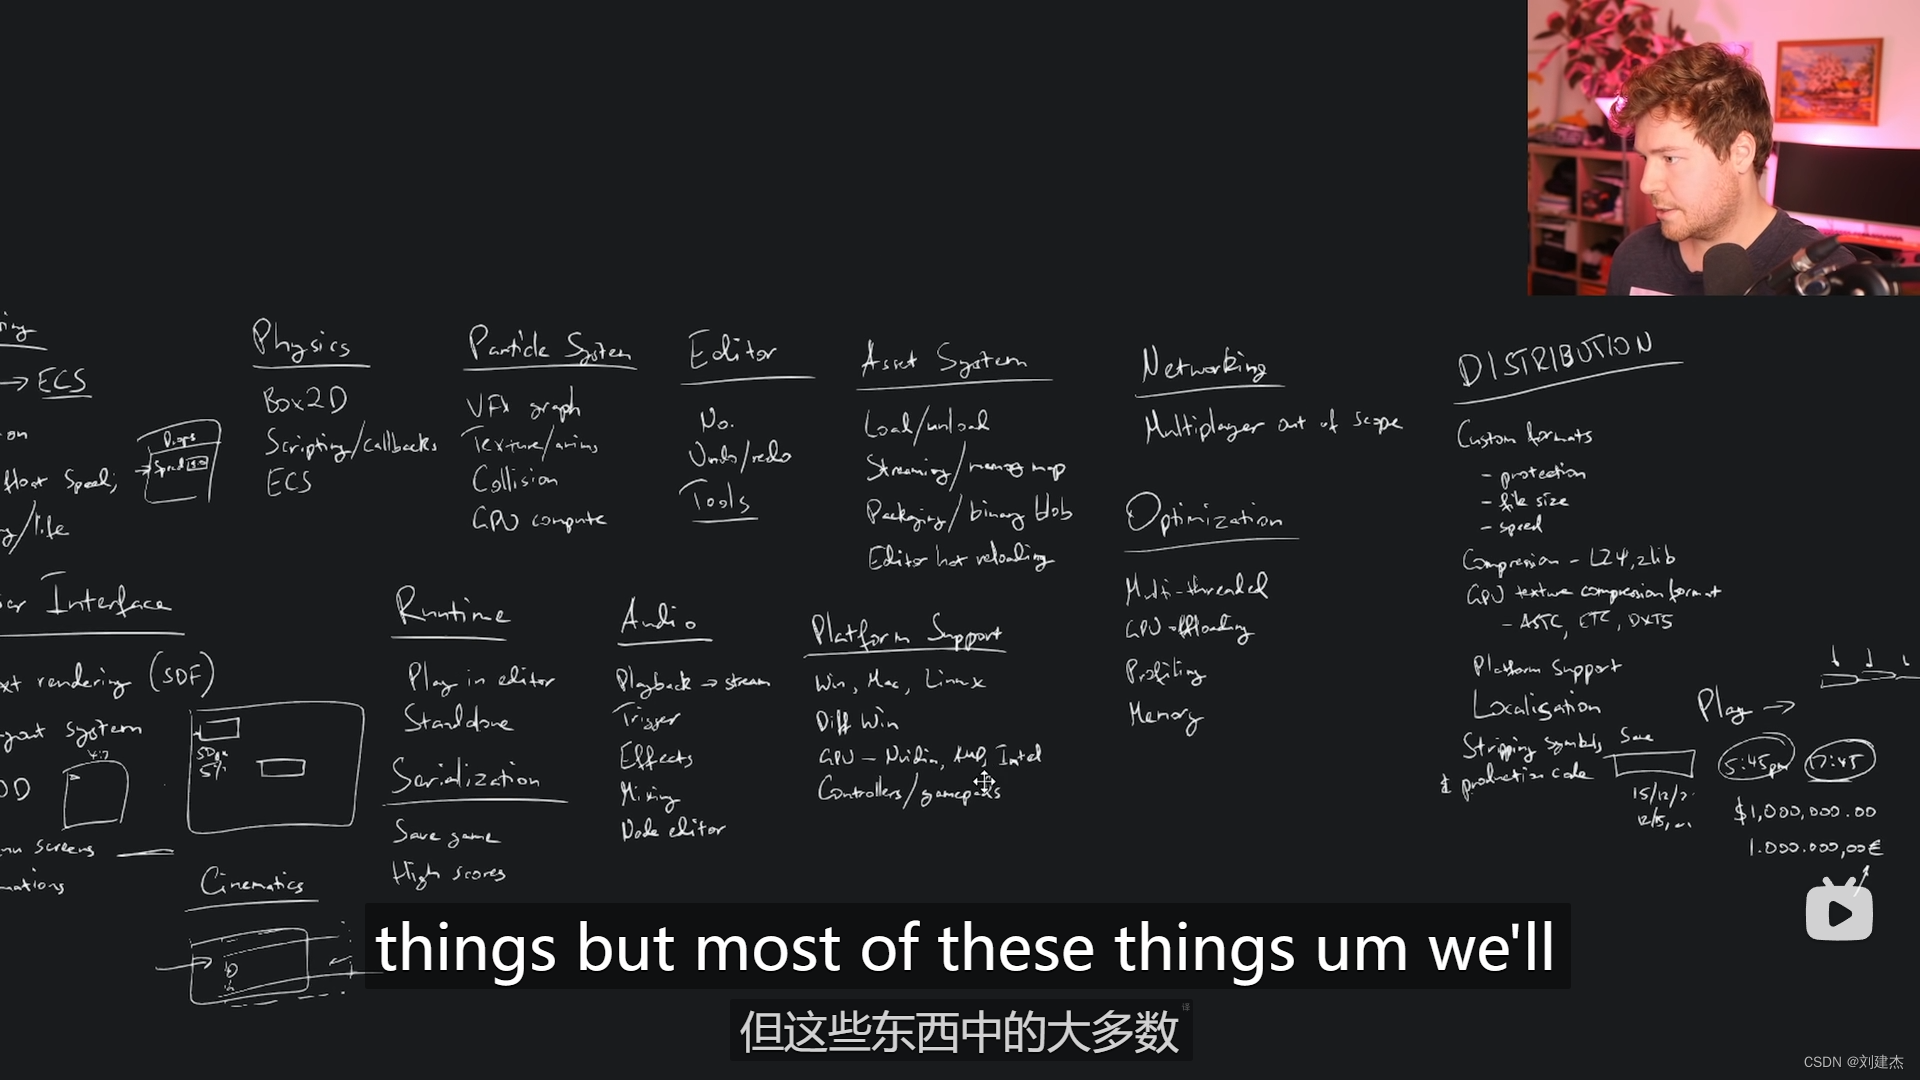 ECS
on
float Speed;
/life
Props
Speed
Physics
Box2D
Scripting/callbacks
ECS
Particle System
VFX graph
Texture/anims
Collision
GPU compute
Editor
No.
Undo/redo
Tools
Asset System
Load/unload
Streaming/memory map
Packaging/binary blob
Editor hot reloading
Networking
Multiplayer out of scope
Optimization
Multi-threaded
GPU offloading
Profiling
Memory
DISTRIBUTION
Custom formats
- protection
- file size
- speed
Compression - LZ4, zlib
GPU texture compression format
- ASTC, ETC, DXT5
Platform Support
Localisation
Stripping symbols
& production code
Save
15/12/2
Play →
5:45pm
17:45
$1,000,000.00
1.000.000,00€
Interface
rendering (SDF)
system
4:3
screens
Cinematics
Runtime
Play in editor
Standalone
Serialization
Save game
High scores
Audio
Playback → stream
Trigger
Effects
Mixing
Node editor
Platform Support
Win, Mac, Linux
Diff Win
GPU - Nvidia, AMD, Intel
Controllers/gamepads
things but most of these things um we'll
但这些东西中的大多数
译
CSDN @刘建杰